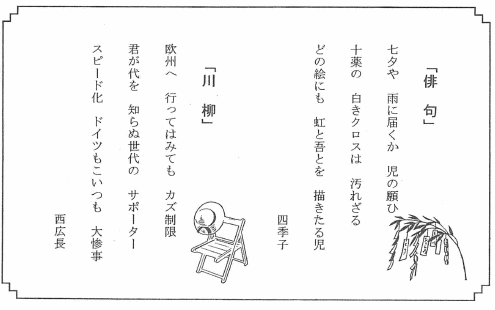 「俳句」
七夕や 雨に届くか 児の願ひ
十薬の 白きクロスは 汚れざる
どの絵にも 虹と吾とを 描きたる児
四季子
「川柳」
欧州へ 行ってはみても カズ制限
君が代を 知らぬ世代の サポーター
スピード化 ドイツもこいつも 大惨事
西広長